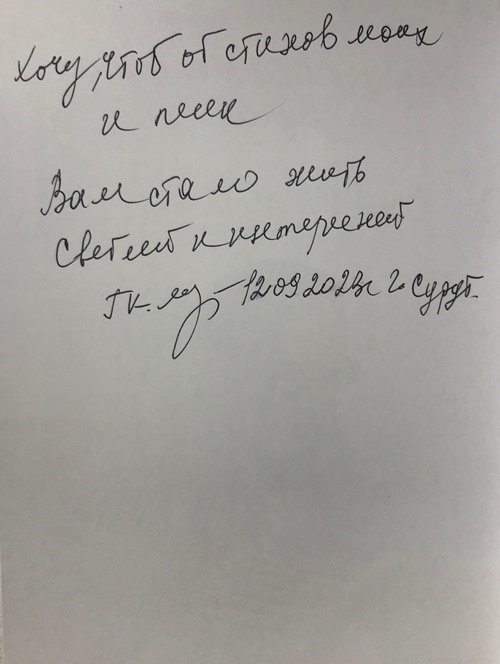 Хочу, чтоб от стихов моих
и песен
Вам стало жить
светлей и интересней
12.09.2023г г. Сургут.